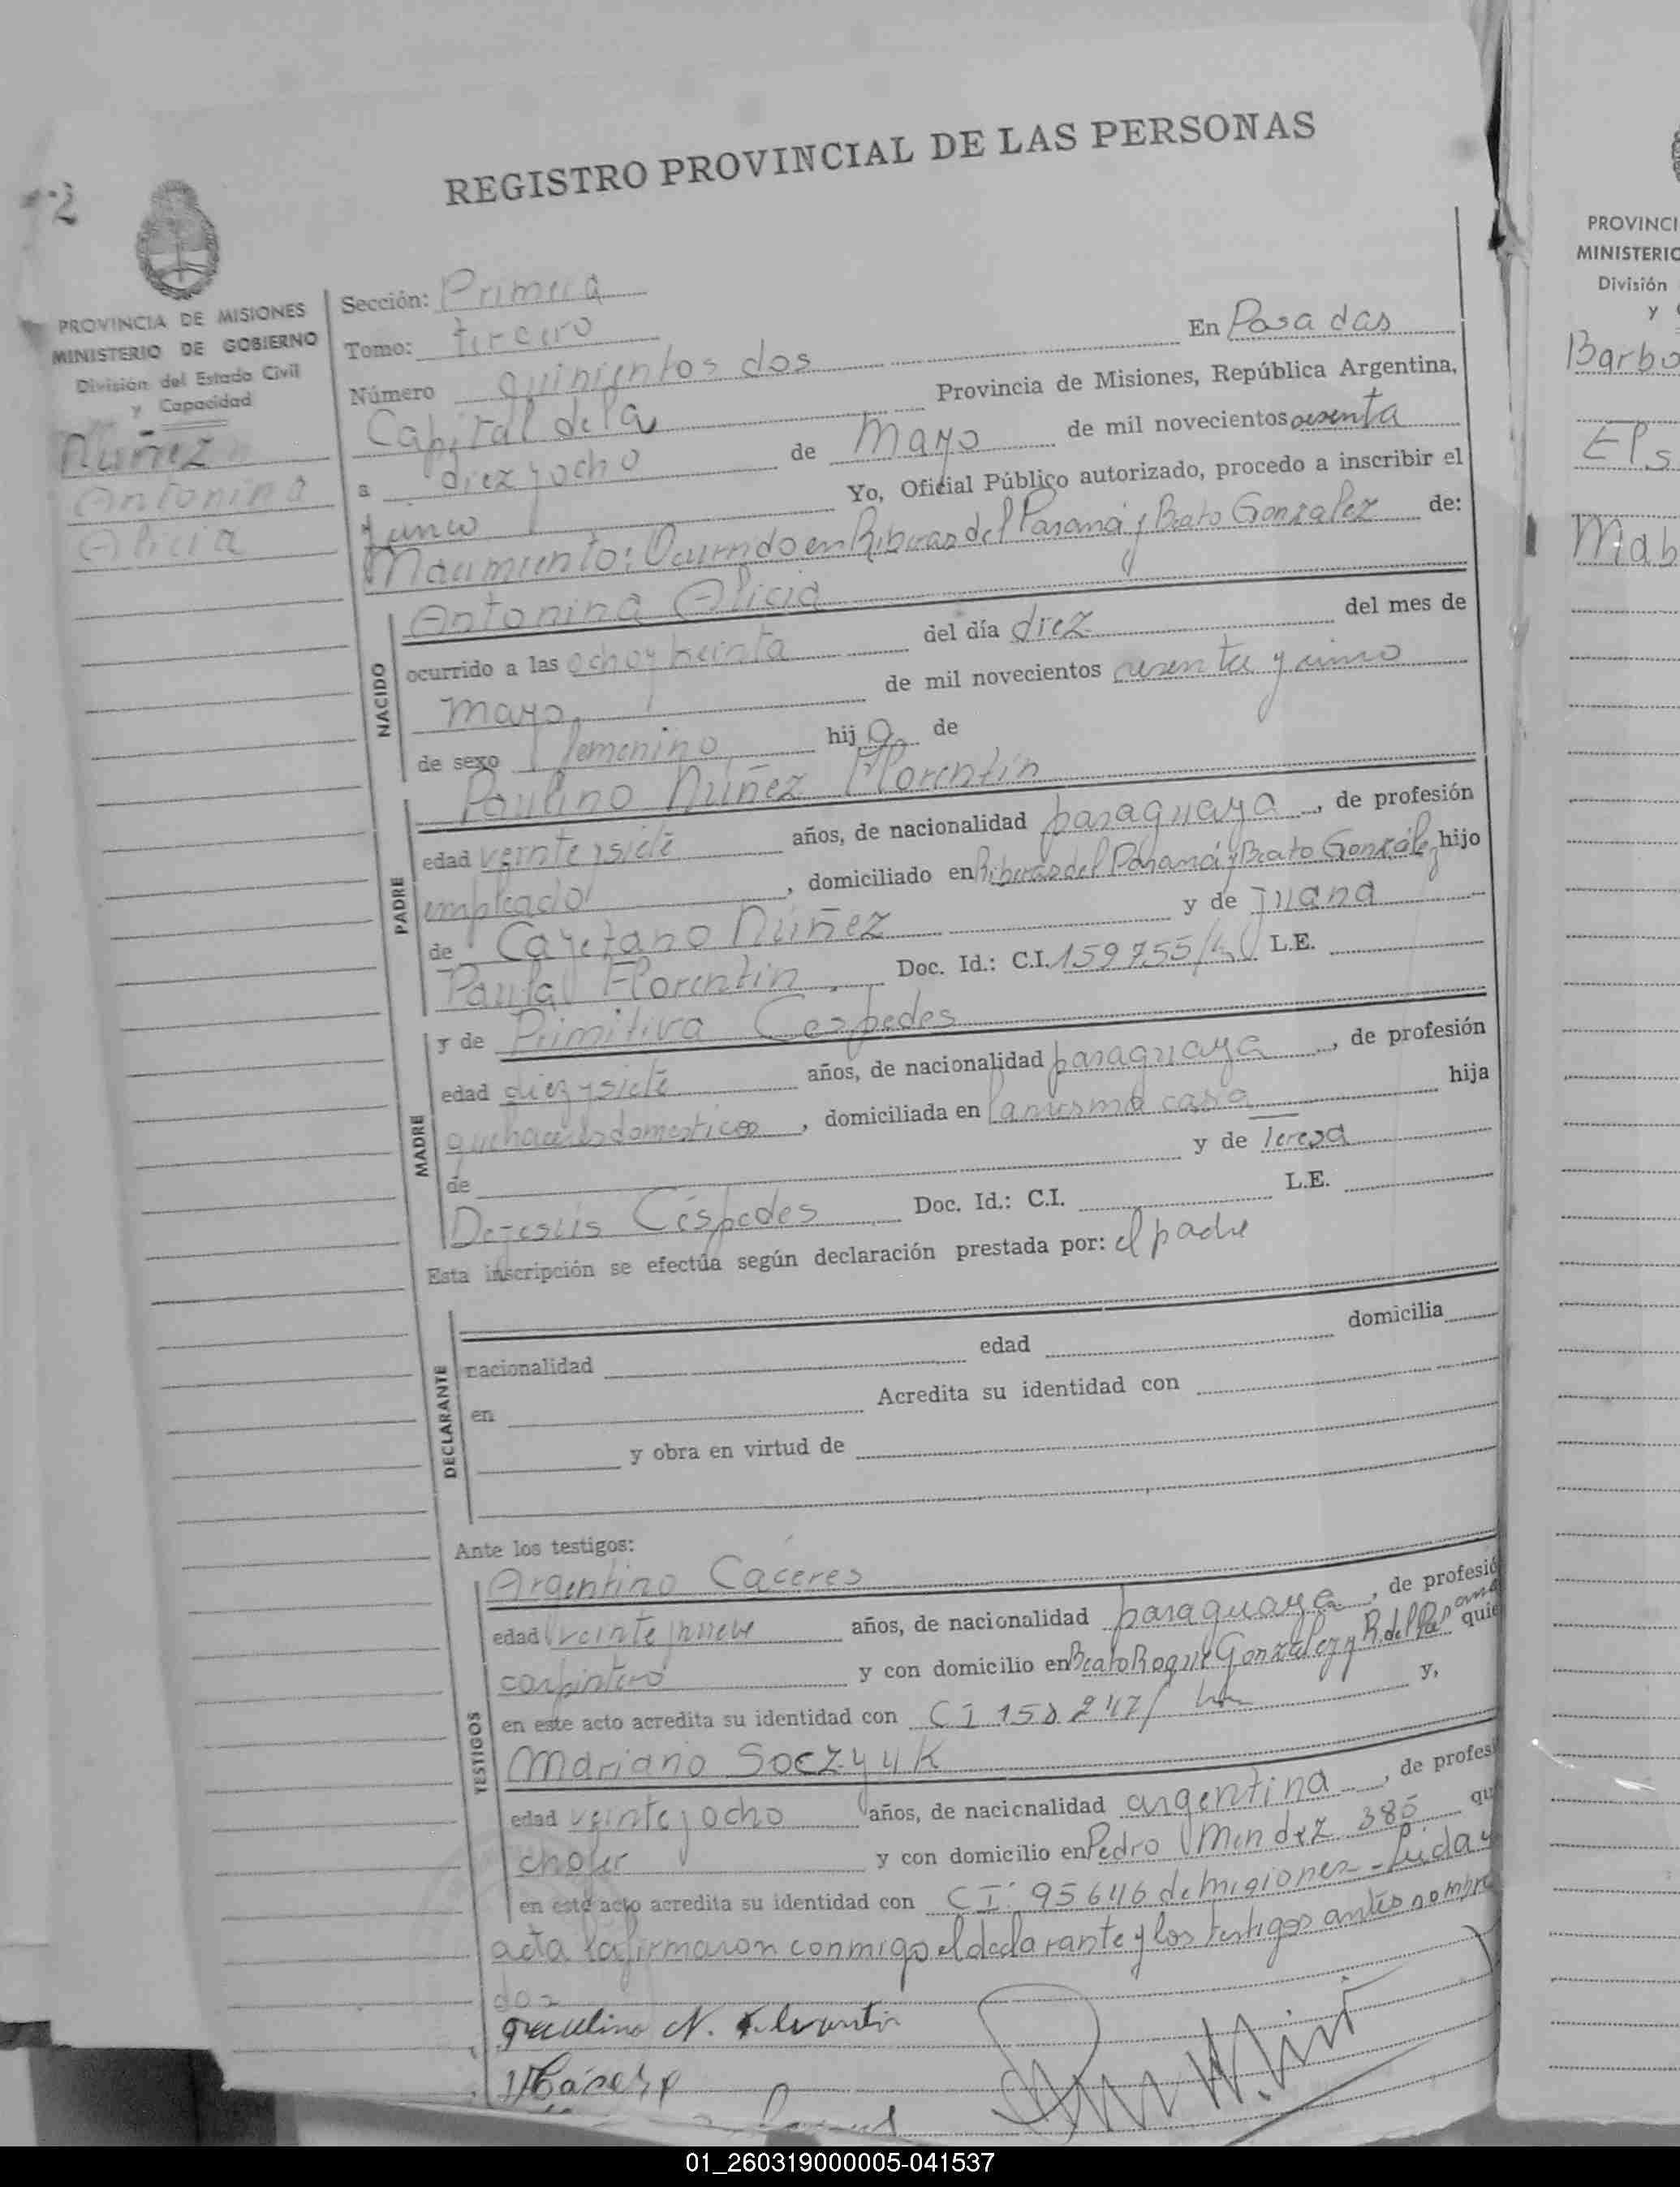 REGISTRO PROVINCIAL DE LAS PERSONAS
PROVINCIA DE MISIONES
MINISTERIO DE GOBIERNO
División del Estado Civil
y Capacidad
Nuñez
Antonina
Alicia
Sección: Primera
Tomo: tercero
Número quinientos dos En Posadas
Capital de la Provincia de Misiones, República Argentina,
a diez y ocho de Mayo de mil novecientos sesenta
y cinco Yo, Oficial Público autorizado, procedo a inscribir el
Nacimiento: Ocurrido en Riberas del Paraná y Beato Gonzalez de:
NACIDO
Antonina Alicia
ocurrido a las ocho y treinta del día diez del mes de
mayo de mil novecientos sesenta y cinco
de sexo femenino hija de
PADRE
Paulino Núñez Florentín
edad veinte y siete años, de nacionalidad paraguaya, de profesión
empleado, domiciliado en Riberas del Paraná y Beato González hijo
de Cayetano Núñez y de Juana
Paula Florentín. Doc. Id.: C.I. 159755/ L.E.
MADRE
y de Primitiva Cespedes
edad diez y siete años, de nacionalidad paraguaya, de profesión
quehaceres domesticos, domiciliada en la misma casa hija
de y de Teresa
De Jesús Céspedes Doc. Id.: C.I. L.E.
Esta inscripción se efectúa según declaración prestada por: el padre
DECLARANTE
nacionalidad edad domicilia
en Acredita su identidad con
y obra en virtud de
Ante los testigos:
TESTIGOS
Argentino Caceres
edad veinte y nueve años, de nacionalidad paraguaya, de profesió
carpintero y con domicilio en Beato Roque Gonzalez y R. del Parana quie
en este acto acredita su identidad con CI 158247/ y,
Mariano Soczyuk
edad veinte y ocho años, de nacionalidad argentina, de profesi
chofer y con domicilio en Pedro Mendez 385 qu
en este acto acredita su identidad con CI 95646 de Misiones - Leida y
acta la firmaron conmigo el declarante y los testigos antes nombra
dos
Paulino N. Florentin
PROVINCI
MINISTERIO
División
y
Barbo
Els
Mab
01_260319000005-041537